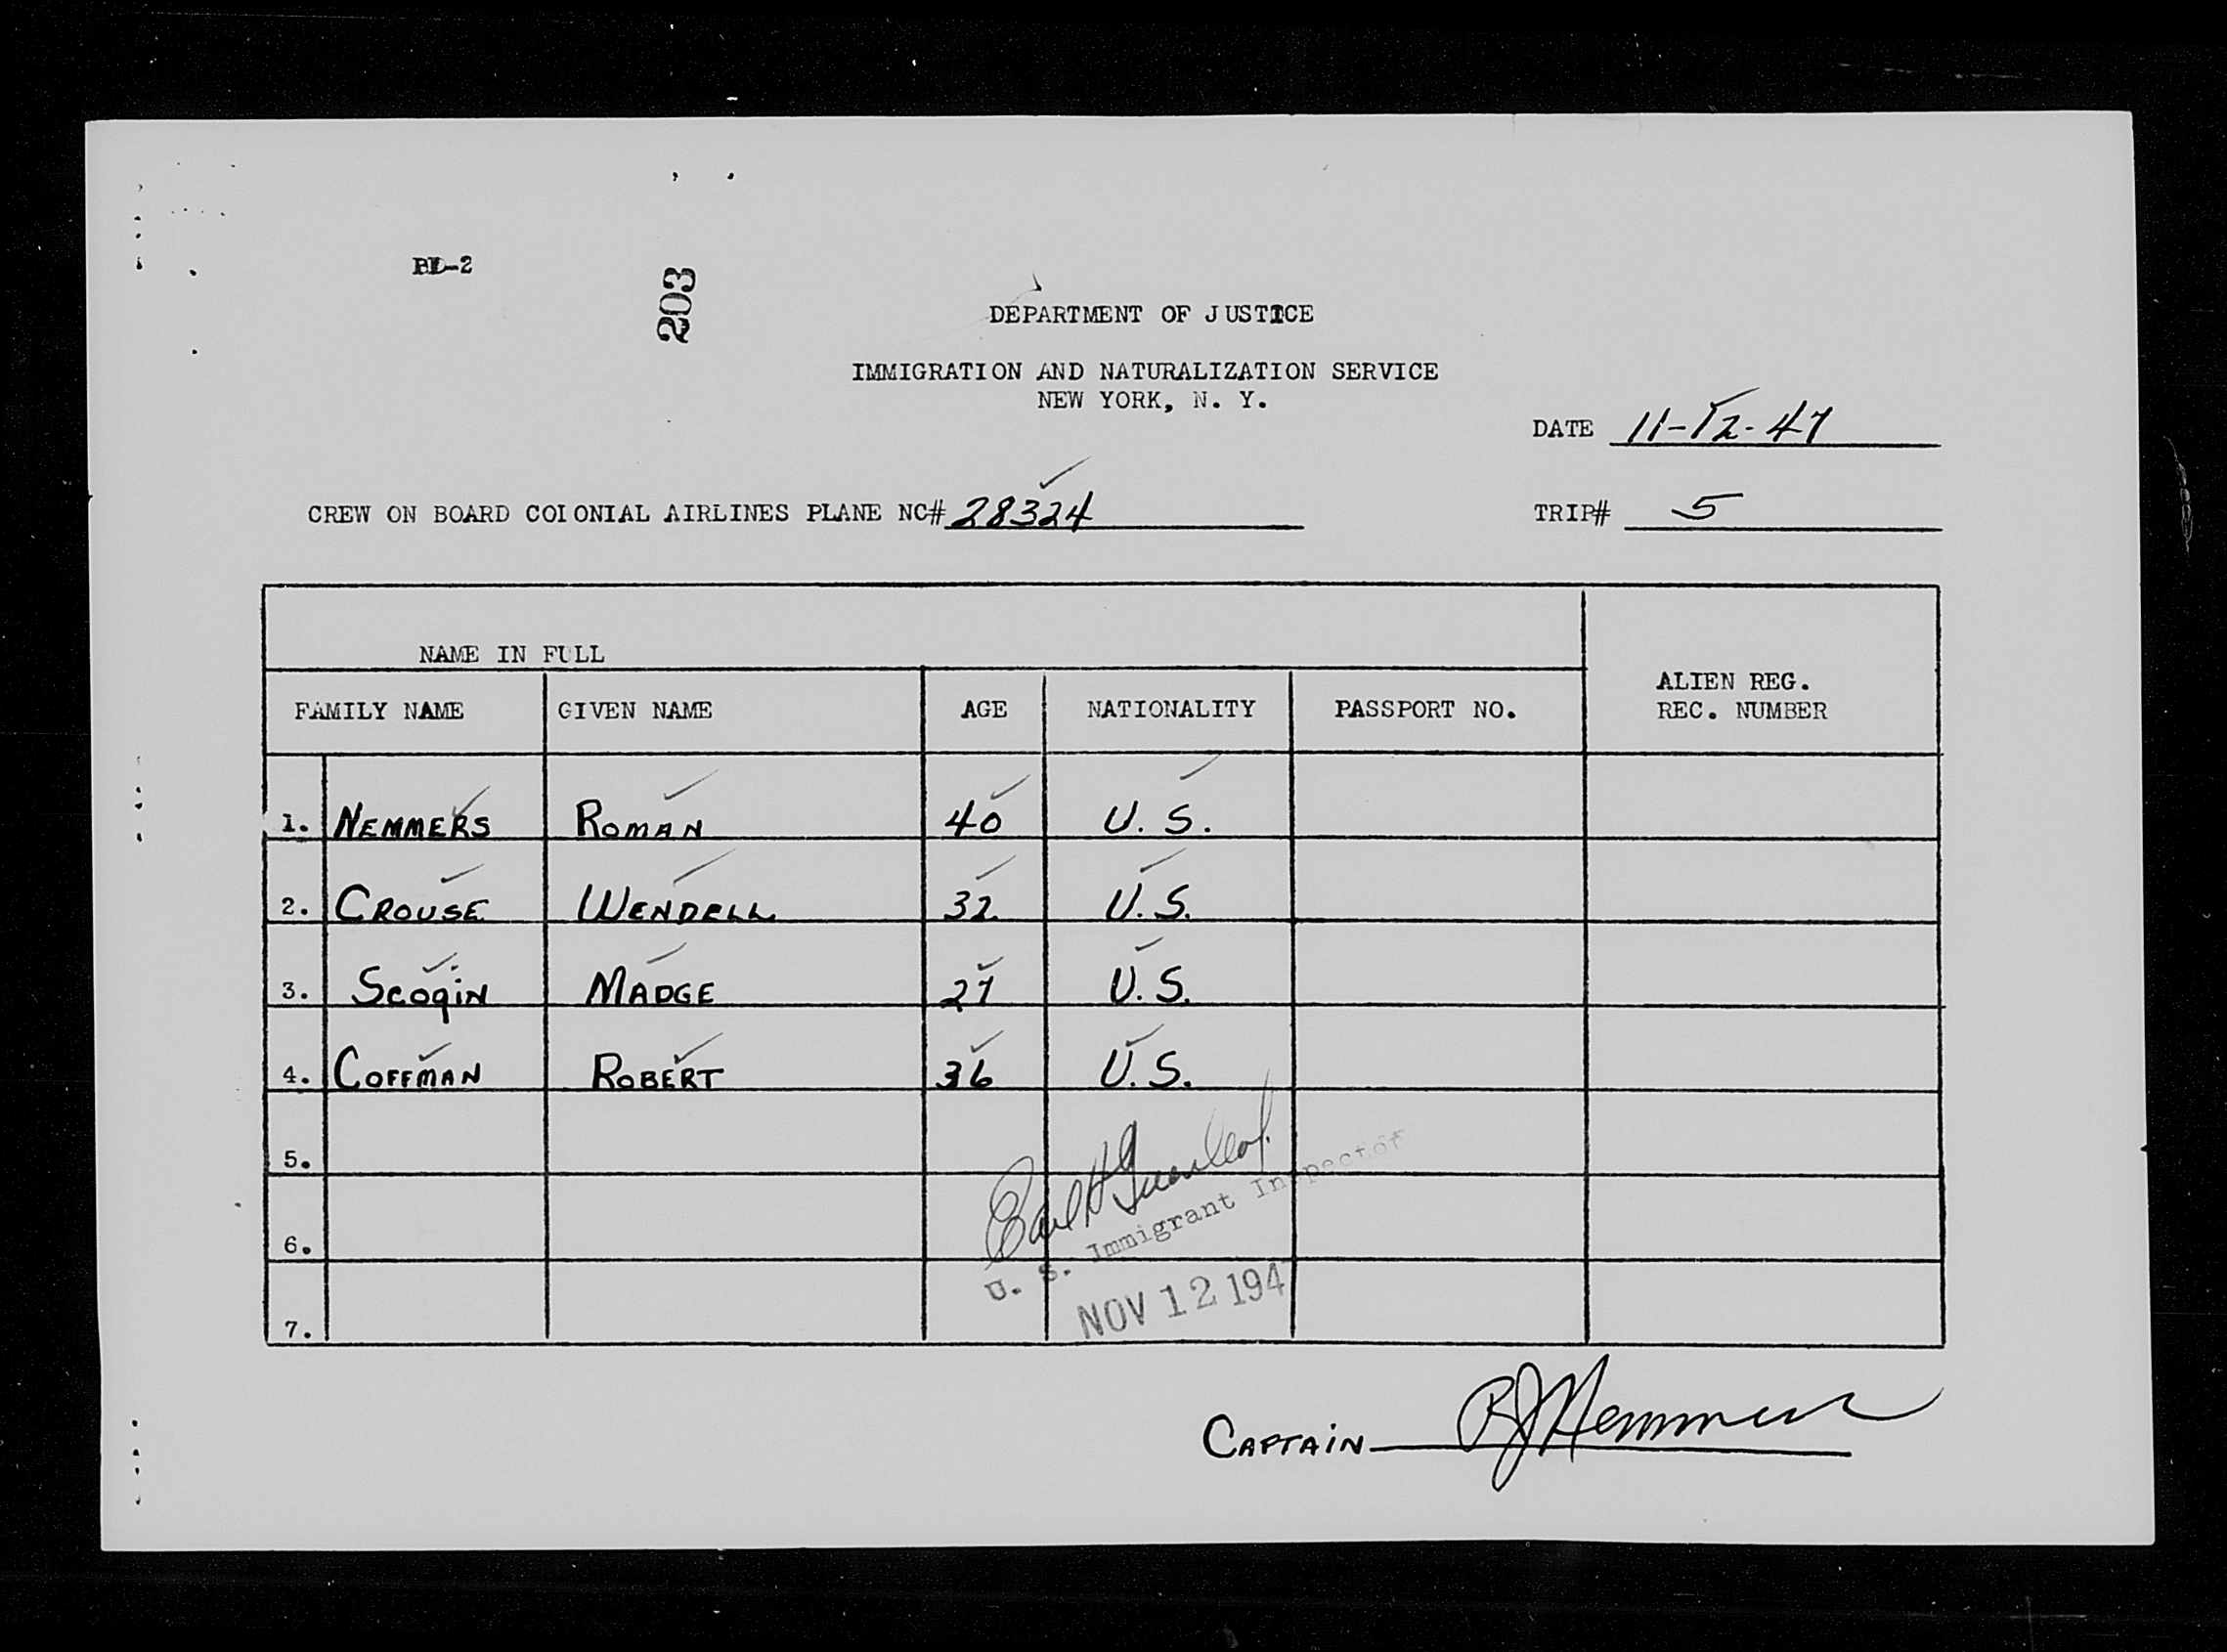 BI-2
203
DEPARTMENT OF JUSTICE
IMMIGRATION AND NATURALIZATION SERVICE
NEW YORK, N. Y.
DATE 11-12-47
CREW ON BOARD COLONIAL AIRLINES PLANE NC# 28324
TRIP# 5
NAME IN FULL
ALIEN REG.
REC. NUMBER
FAMILY NAME GIVEN NAME AGE NATIONALITY PASSPORT NO.
1. NEMMERS ROMAN 40 U.S.
2. CROUSE WENDELL 32 U.S.
3. SCOGIN MADGE 27 U.S.
4. COFFMAN ROBERT 36 U.S.
5.
6.
7.
Earl H Greenleaf
U. S. Immigrant Inspector
NOV 12 194
CAPTAIN RJ Nemmers